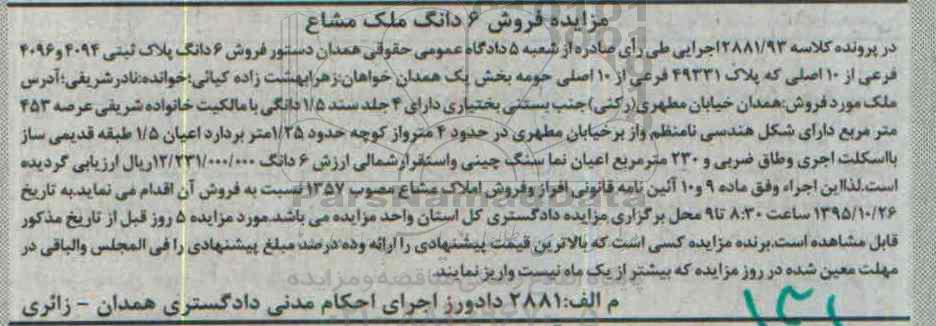 مزایده فروش ۶ دانگ ملک مشاع
در پرونده کلاسه ۲۸۸۱/۹۳اجرایی طی رأی صادره از شعبه ۵ دادگاه عمومی حقوقی همدان دستور فروش ۶دانگ پلاک ثبتی ۴۰۹۴ و۴۰۹۶
فرعی از ۱۰ اصلی که پلاک ۴۹۳۳۱ فرعی از ۱۰ اصلی حومه بخش یک همدان خواهان:زهرابهشت زاده کیائی؛خوانده:نادرشریفی؛آدرس
ملک مورد فروش:همدان خیابان مطهری(رکنی)جنب بستنی بختیاری دارای ۴ جلد سند ۱/۵ دانگی با مالکیت خانواده شریفی عرصه ۴۵۳
متر مربع دارای شکل هندسی نامنظم واز برخیابان مطهری در حدود ۴ مترواز کوچه حدود ۱/۲۵متر بردارد اعیان ۱/۵ طبقه قدیمی ساز
بااسکلت اجری وطاق ضربی و ۲۳۰ مترمربع اعیان نما سنگ چینی واستقرارشمالی ارزش ۶ دانگ ۱۲/۲۳۱/۰۰۰/۰۰۰ریال ارزیابی گردیده
است.لذااین اجراء وفق ماده ۹ و۱۰ آئین نامه قانونی افراز وفروش املاک مشاع مصوب ۱۳۵۷ نسبت به فروش آن اقدام می نماید.به تاریخ
۱۳۹۵/۱۰/۲۶ ساعت ۸:۳۰ تا۹ محل برگزاری مزایده دادگستری کل استان واحد مزایده می باشد.مورد مزایده ۵ روز قبل از تاریخ مذکور
قابل مشاهده است.برنده مزایده کسی است که بالاترین قیمت پیشنهادی را ارائه وده درصد مبلغ پیشنهادی را فی المجلس والباقی در
مهلت معین شده در روز مزایده که بیشتر از یک ماه نیست واریز نمایند
م الف:۲۸۸۱ دادورز اجرای احکام مدنی دادگستری همدان - زائری
ParsNamadData